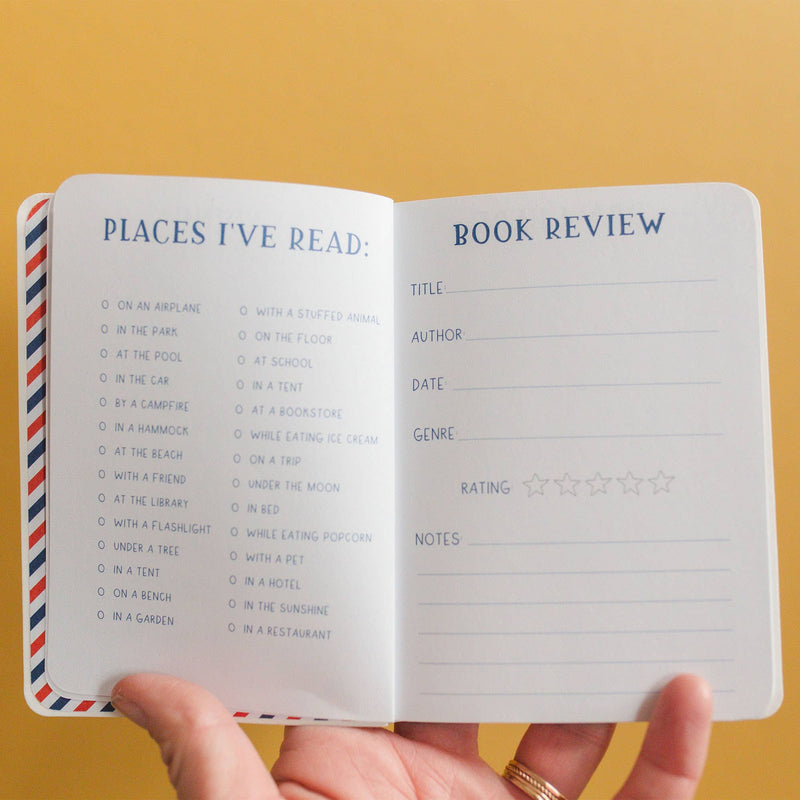 PLACES I'VE READ:
O ON AN AIRPLANE
O IN THE PARK
O AT THE POOL
O IN THE CAR
O BY A CAMPFIRE
O IN A HAMMOCK
O AT THE BEACH
O WITH A FRIEND
O AT THE LIBRARY
O WITH A FLASHLIGHT
O UNDER A TREE
O IN A TENT
O ON A BENCH
O IN A GARDEN
O WITH A STUFFED ANIMAL
O ON THE FLOOR
O AT SCHOOL
O IN A TENT
O AT A BOOKSTORE
O WHILE EATING ICE CREAM
O ON A TRIP
O UNDER THE MOON
O IN BED
O WHILE EATING POPCORN
O WITH A PET
O IN A HOTEL
O IN THE SUNSHINE
O IN A RESTAURANT
BOOK REVIEW
TITLE:
AUTHOR:
DATE:
GENRE:
RATING:
NOTES: